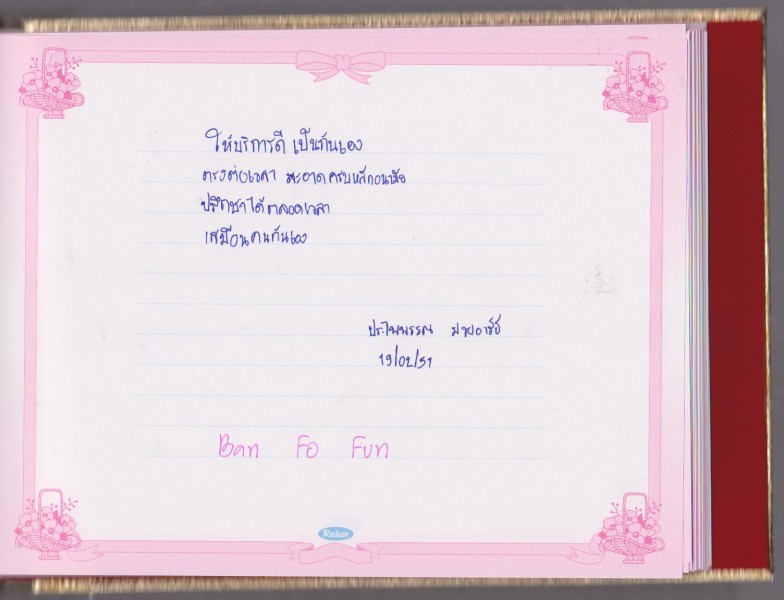 ให้บริการดี เป็นกันเอง
ตรงต่อเวลา สะอาดครบหลักอนามัย
ปรึกษาได้ตลอดเวลา
เสมือนคนกันเอง
ประไพพรรณ
19/02/51
Ban Fo Fun
Relux